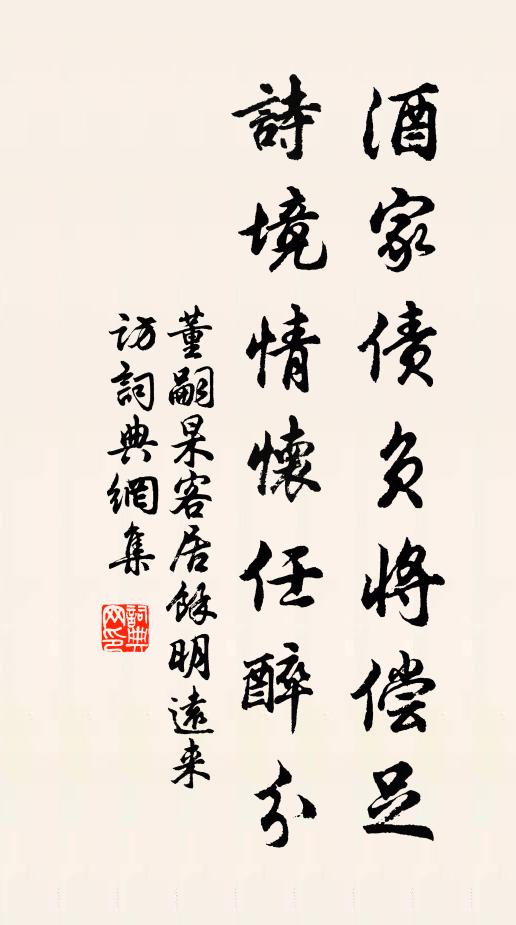 酒家债负将偿足
詩境情懷任醉分
董嗣杲客居餘明遠来
访詞典網集
詞典网印